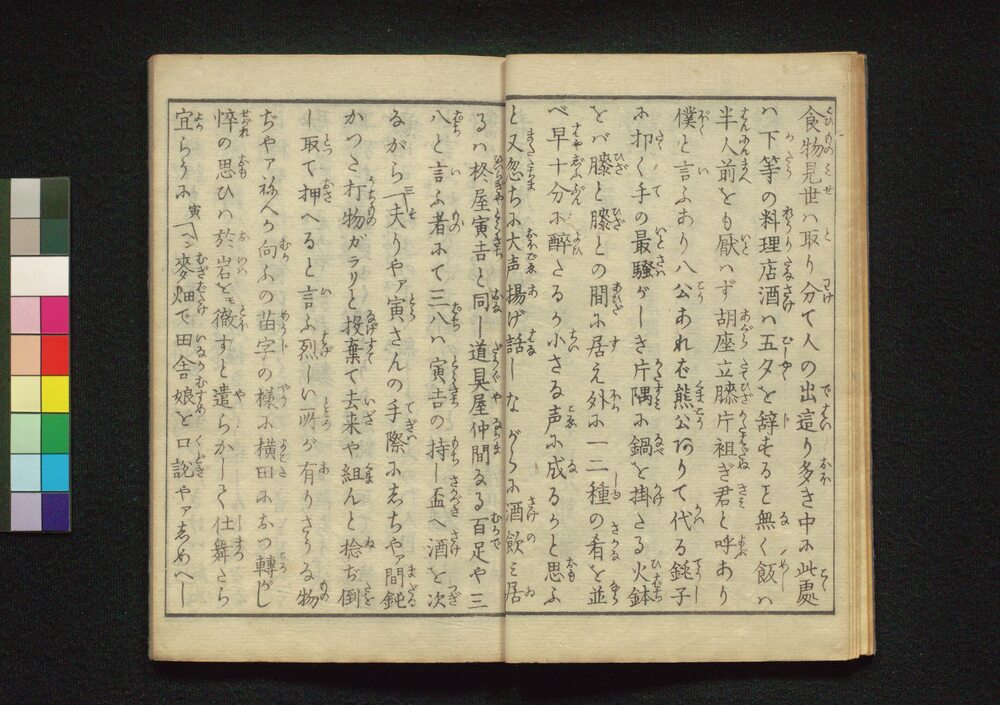 食物見世ハ取り分て人の出這り多き中に此處
ハ下等の料理店酒ハ五夕を辞せずるヿ無く飯ハ
半人前をも厭ハず胡座立膝片袒ぎ君と呼あり
僕と言ふあり八公あれバ熊公ありて代る銚子
に扣く手の最騒がしき片隅に鍋を掛たる火鉢
をバ膝と膝との間に居え外に一二種の肴を並
べ早十分に酔たるか小さる声に成るかと思ふ
と又忽ちに大声揚げ話しながらに酒飲ミ居
るハ柊屋寅吉と同し道具屋仲間なる百足や三
八と言ふ者にて三八ハ寅吉の持し盃へ酒を次
ながら三「夫りやァ寅さんの手際にしちやァ間鈍
かつた打物ガラリと投棄て去来や組んと捻ぢ倒
し取て押へると言ふ烈しい所が有りさうな物
ぢやァ祢へか向ふの苗字の様に横田におつ轉がし
悴の思ひハ於岩をモ徹すと遣らかして仕舞たら
宜らうに寅「ヘン麥畑で田舎娘を口説やァしめへし